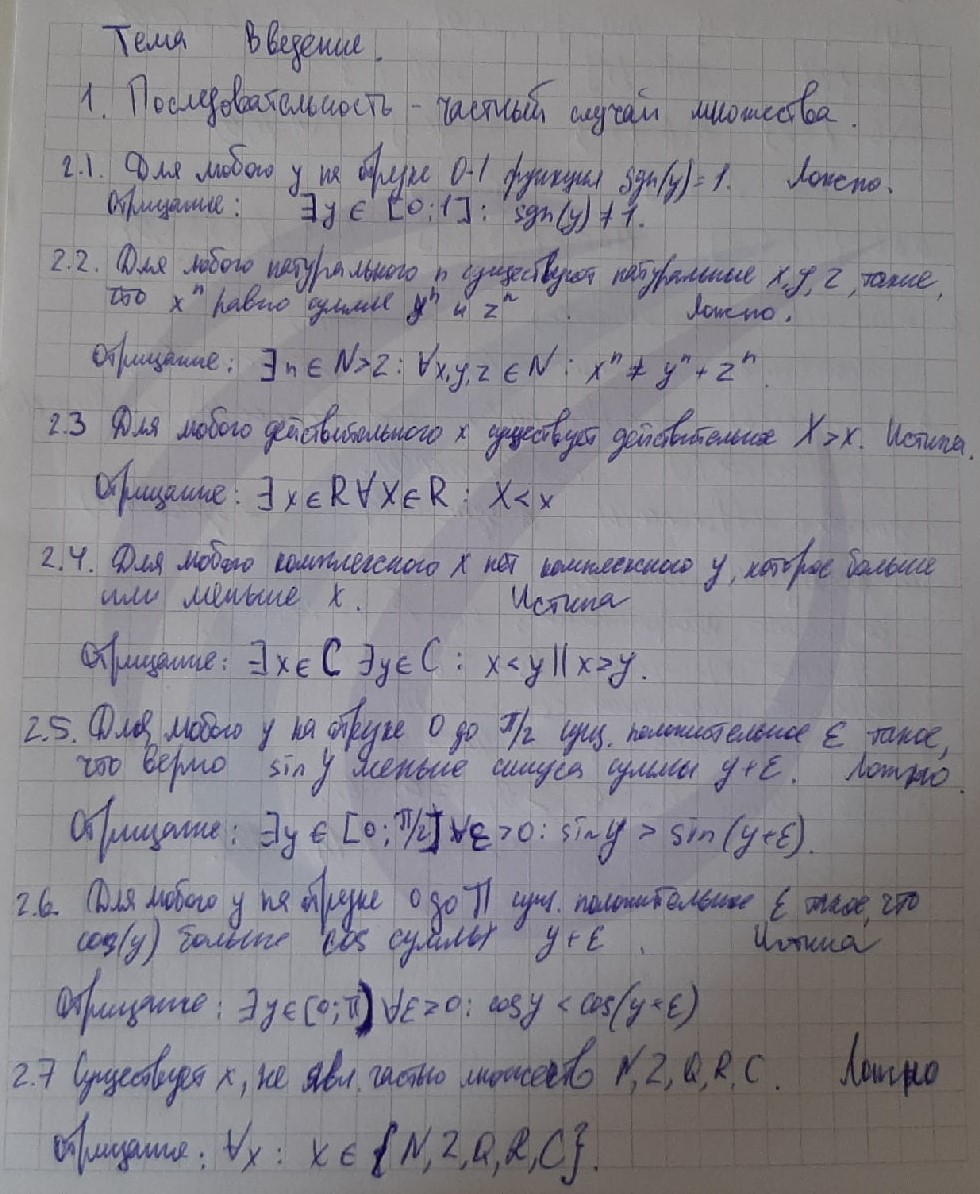 Тема Введение.
1. Последовательность - частный случай множества.
2.1. Для любого y на отрезке 0-1 функция sgn(y)=1. Ложно.
Отрицание: ∃y ∈ [0;1]: sgn(y)≠1.
2.2. Для любого натурального n существуют натуральные x,y,z, такие,
что xⁿ равно сумме yⁿ и zⁿ. Ложно.
Отрицание: ∃n ∈ N>2: ∀x,y,z ∈ N: xⁿ ≠ yⁿ + zⁿ.
2.3 Для любого действительного x существует действительное X>x. Истина.
Отрицание: ∃x∈R ∀X∈R: X<x
2.4. Для любого комплексного x нет комплексного y, которое больше
или меньше x. Истина
Отрицание: ∃x∈C ∃y∈C: x<y || x>y.
2.5. Для любого y на отрезке 0 до π/2 сущ. положительное ε такое,
что верно sin y меньше синуса суммы y+ε. Ложно.
Отрицание: ∃y ∈ [0; π/2] ∀ε>0: sin y > sin(y+ε).
2.6. Для любого y на отрезке 0 до π сущ. положительное ε такое, что
cos(y) больше cos суммы y+ε. Истина
Отрицание: ∃y∈[0;π) ∀ε>0: cos y < cos(y+ε)
2.7 Существует x, не явл. частью множеств N,Z,Q,R,C. Ложно
Отрицание: ∀x: x∈{N,Z,Q,R,C}.